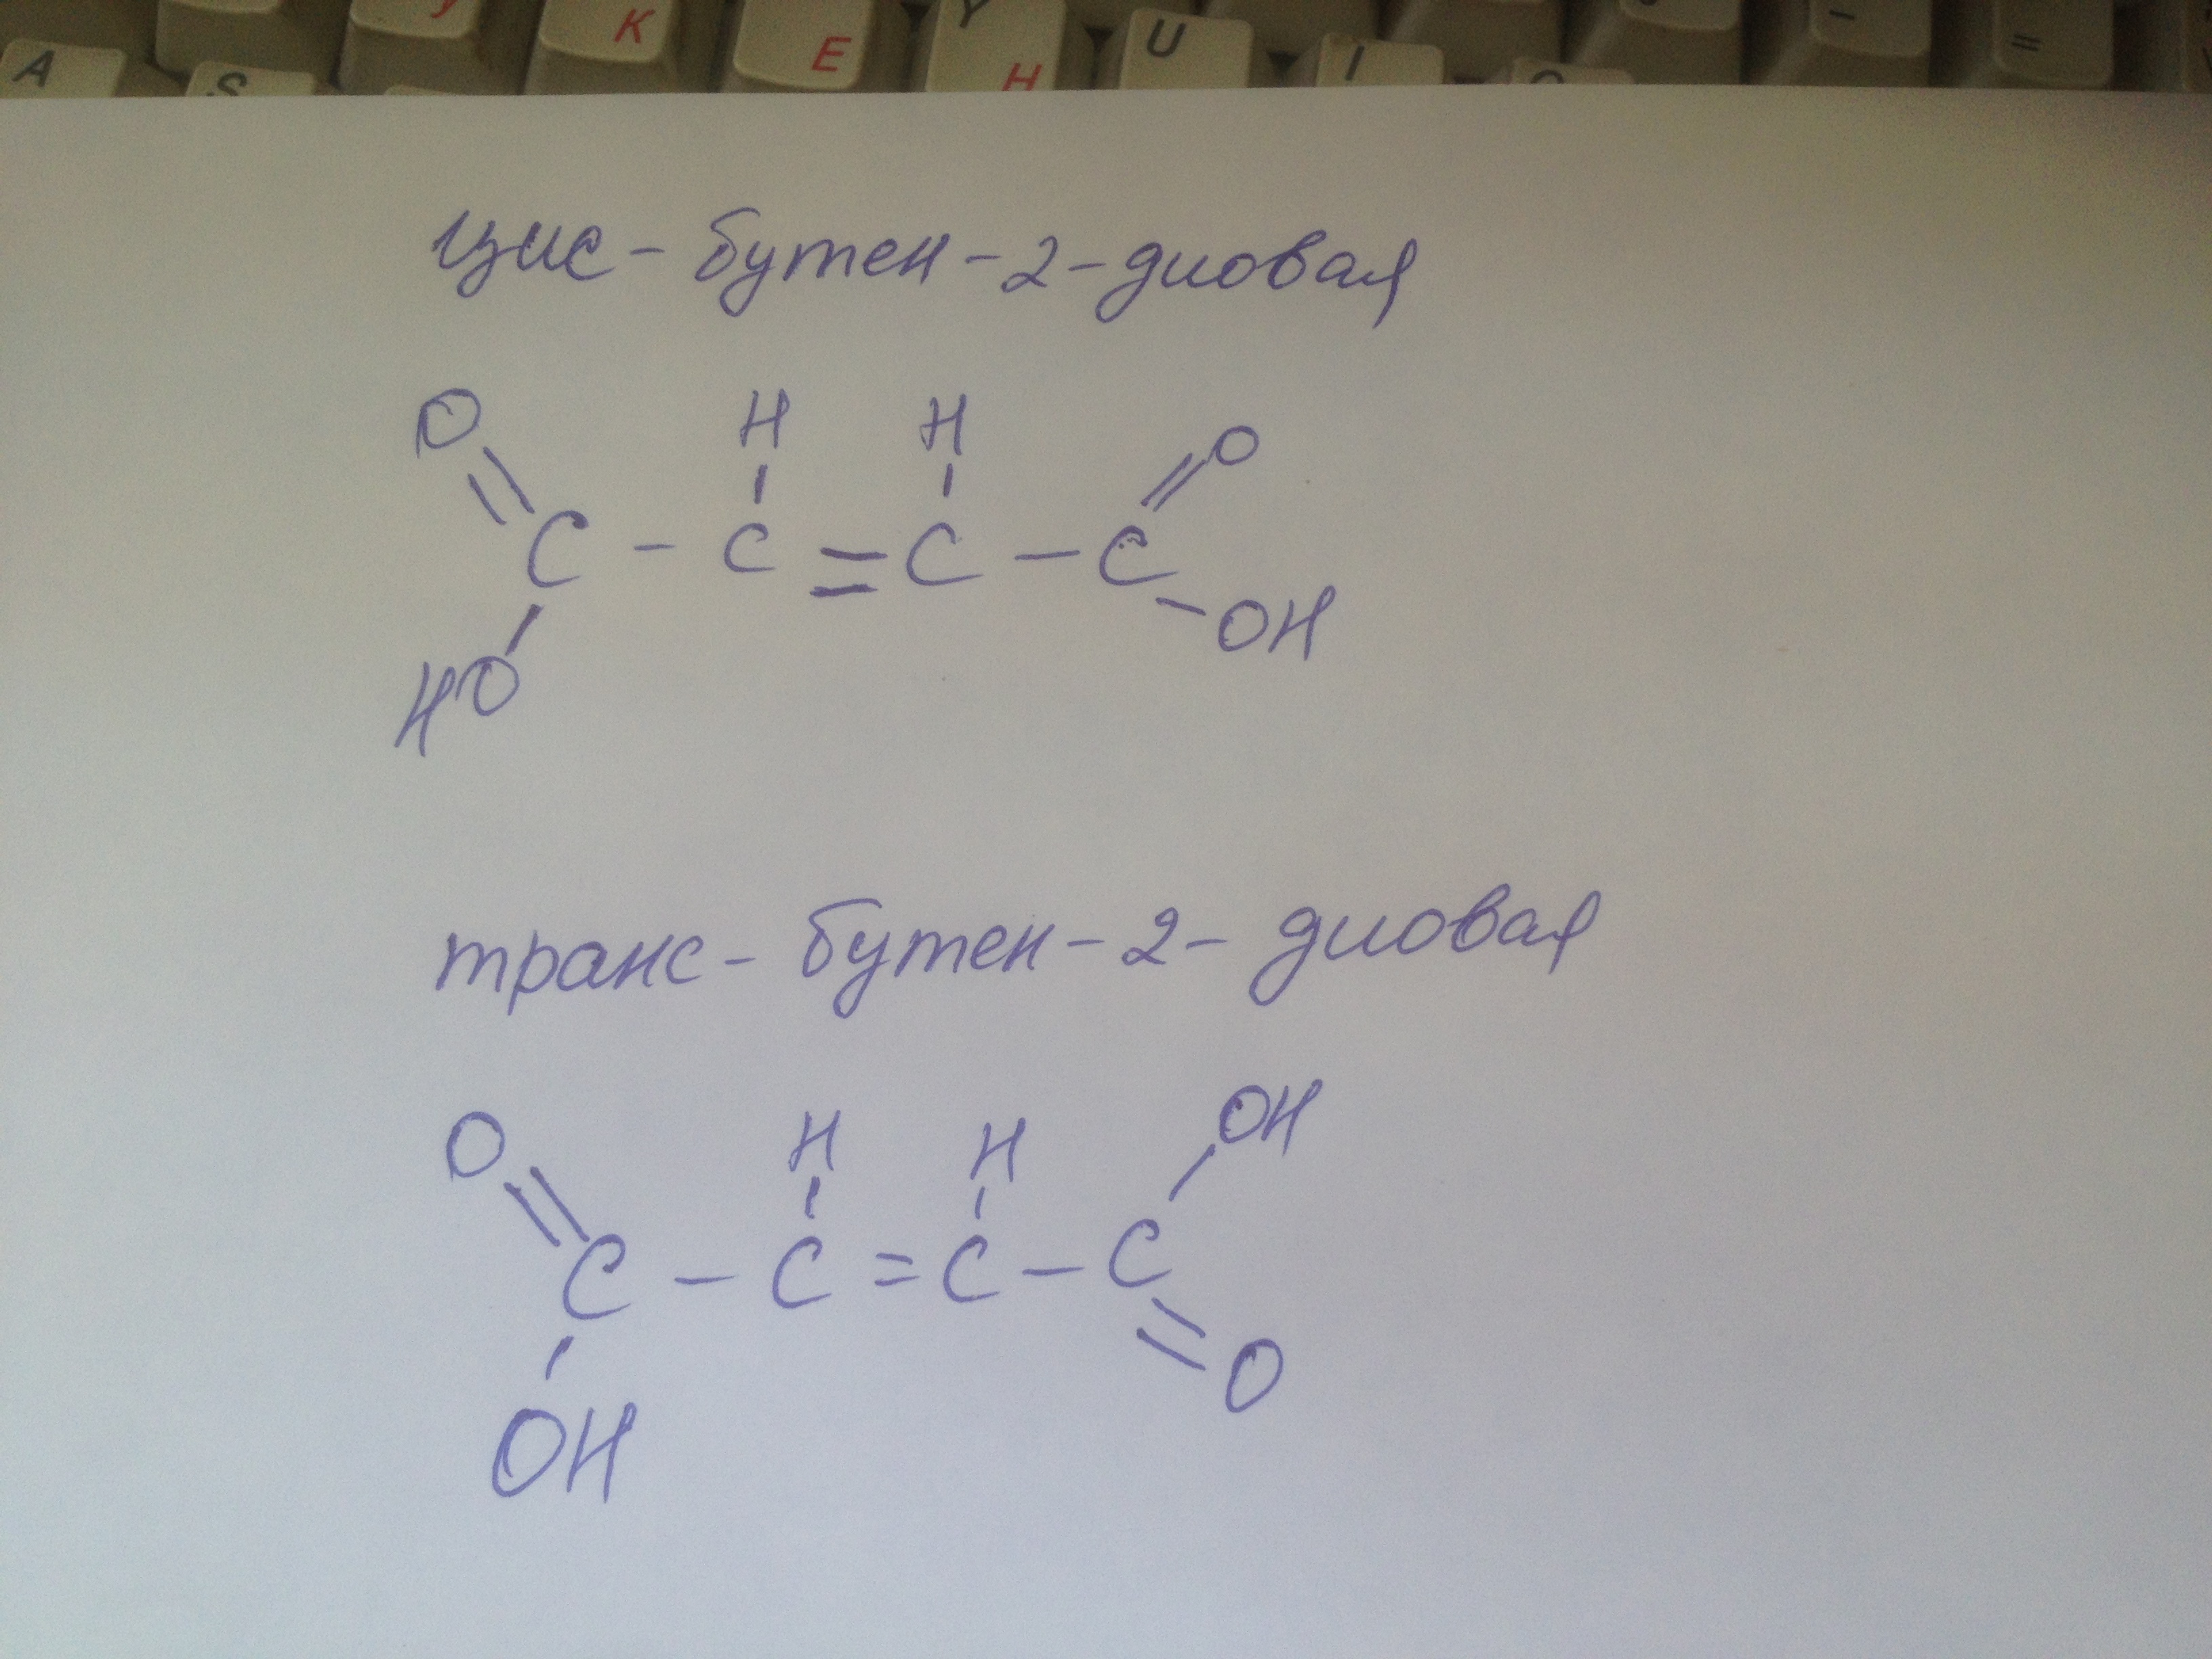 A S У K E Y H U I O - =
цис - бутен - 2 - диовая
O H H O
C - C = C - C
HO OH
транс - бутен - 2 - диовая
O H H OH
C - C = C - C
OH O